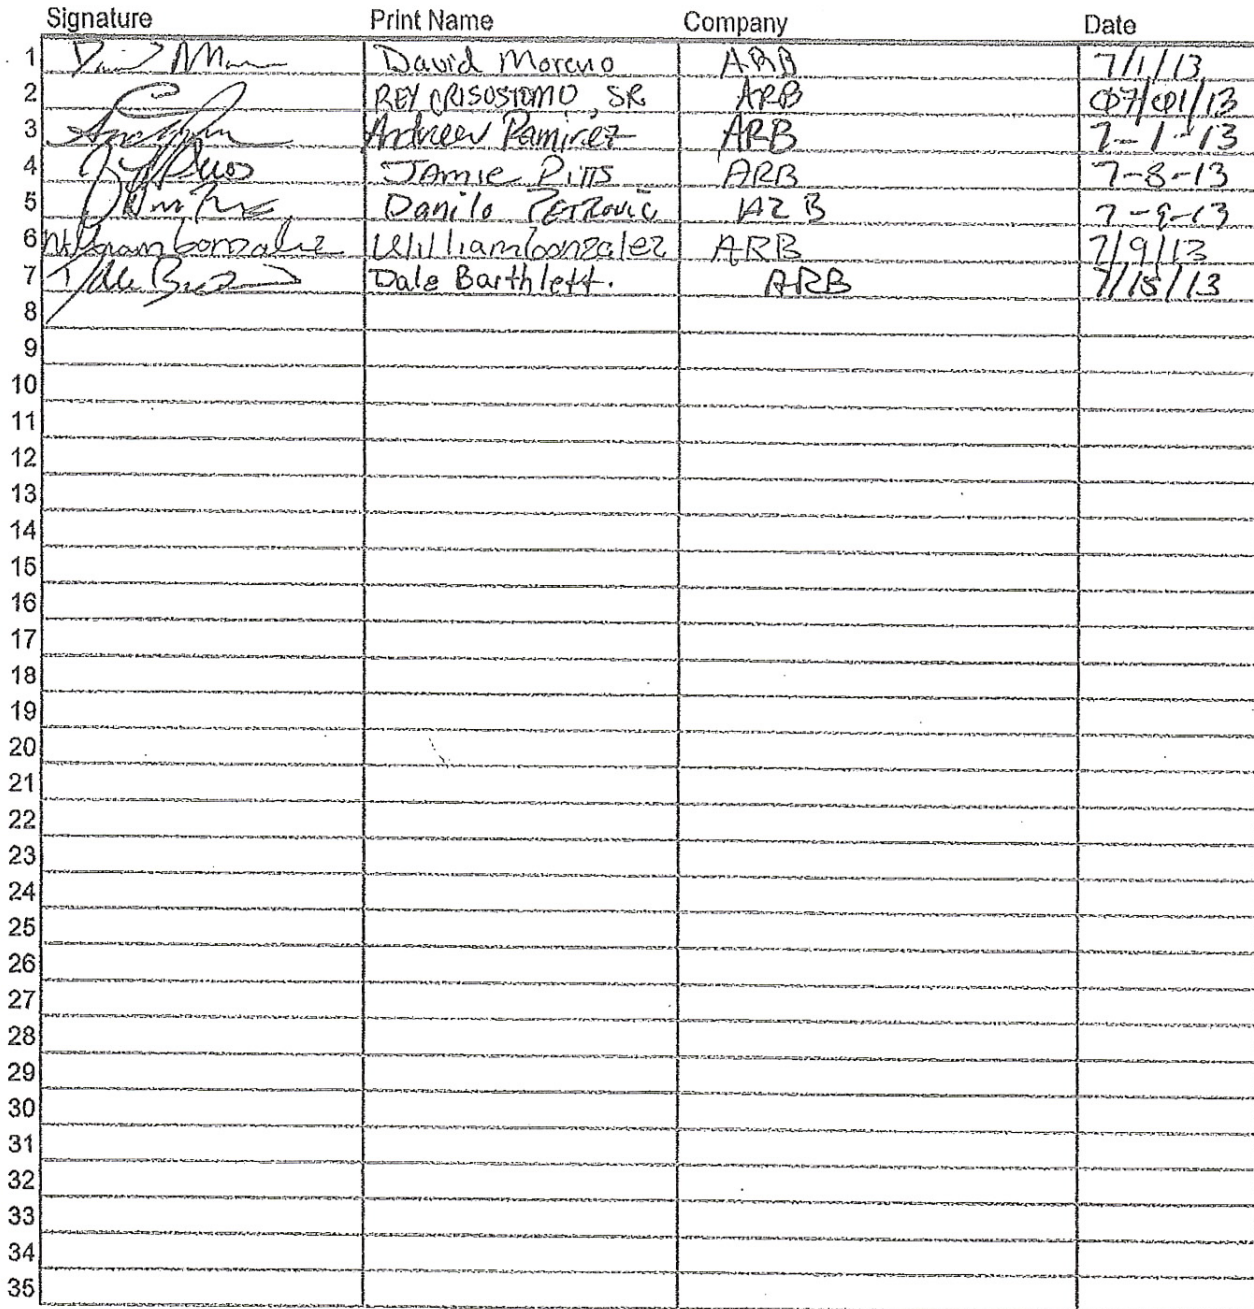 Signature Print Name Company Date
1 David Moreno ARB 7/1/13
2 REY CRISOSTOMO, SR ARB 07/01/13
3 Andrew Ramirez ARB 7-1-13
4 JAmie PiTTS ARB 7-8-13
5 Danilo PETROVIC ARB 7-9-13
6 William Gonzalez William Gonzalez ARB 7/9/13
7 Dale Barthlett. ARB 7/15/13
8
9
10
11
12
13
14
15
16
17
18
19
20
21
22
23
24
25
26
27
28
29
30
31
32
33
34
35